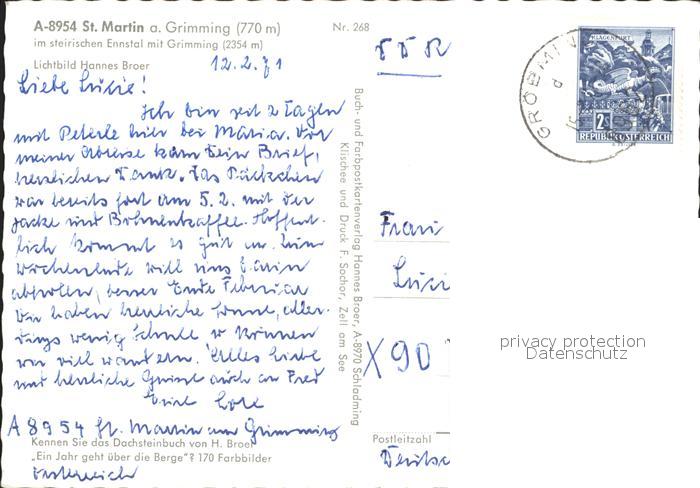 A-8954 St. Martin a. Grimming (770 m) Nr. 268
im steirischen Ennstal mit Grimming (2354 m)
Lichtbild Hannes Broer 12.2.71
Liebe Luzie!
Ich bin seit 2 Tagen
mit Peterle hier bei Maria. Vor
meiner Abreise kam Dein Brief,
herzlichen Dank. Das Päckchen
war bereits fort am 5.2. mit der
Jacke und Bohnenkaffee. Hoffent-
lich kommt es gut an. Zum
Wochenende will uns
abholen, besser Ende Februar
Wir haben herrliche Sonne, aller-
dings wenig Schnee u können
wir viel wandern. Alles Liebe
und herzliche Grüsse auch an Fred
Eure Lore
A 8954 St. Martin am Grimming
Kennen Sie das Dachsteinbuch von H. Broer
„Ein Jahr geht über die Berge"? 170 Farbbilder
Österreich
Buch- und Farbpostkartenverlag Hannes Broer, A-8970 Schladming
Klischee und Druck F. Sochor, Zell am See
DDR
KLAGENFURT
2S
REPUBLIK ÖSTERREICH
GRÖBMING
Frau
Luzi
X 90
Postleitzahl
Deutsc
privacy protection
Datenschutz